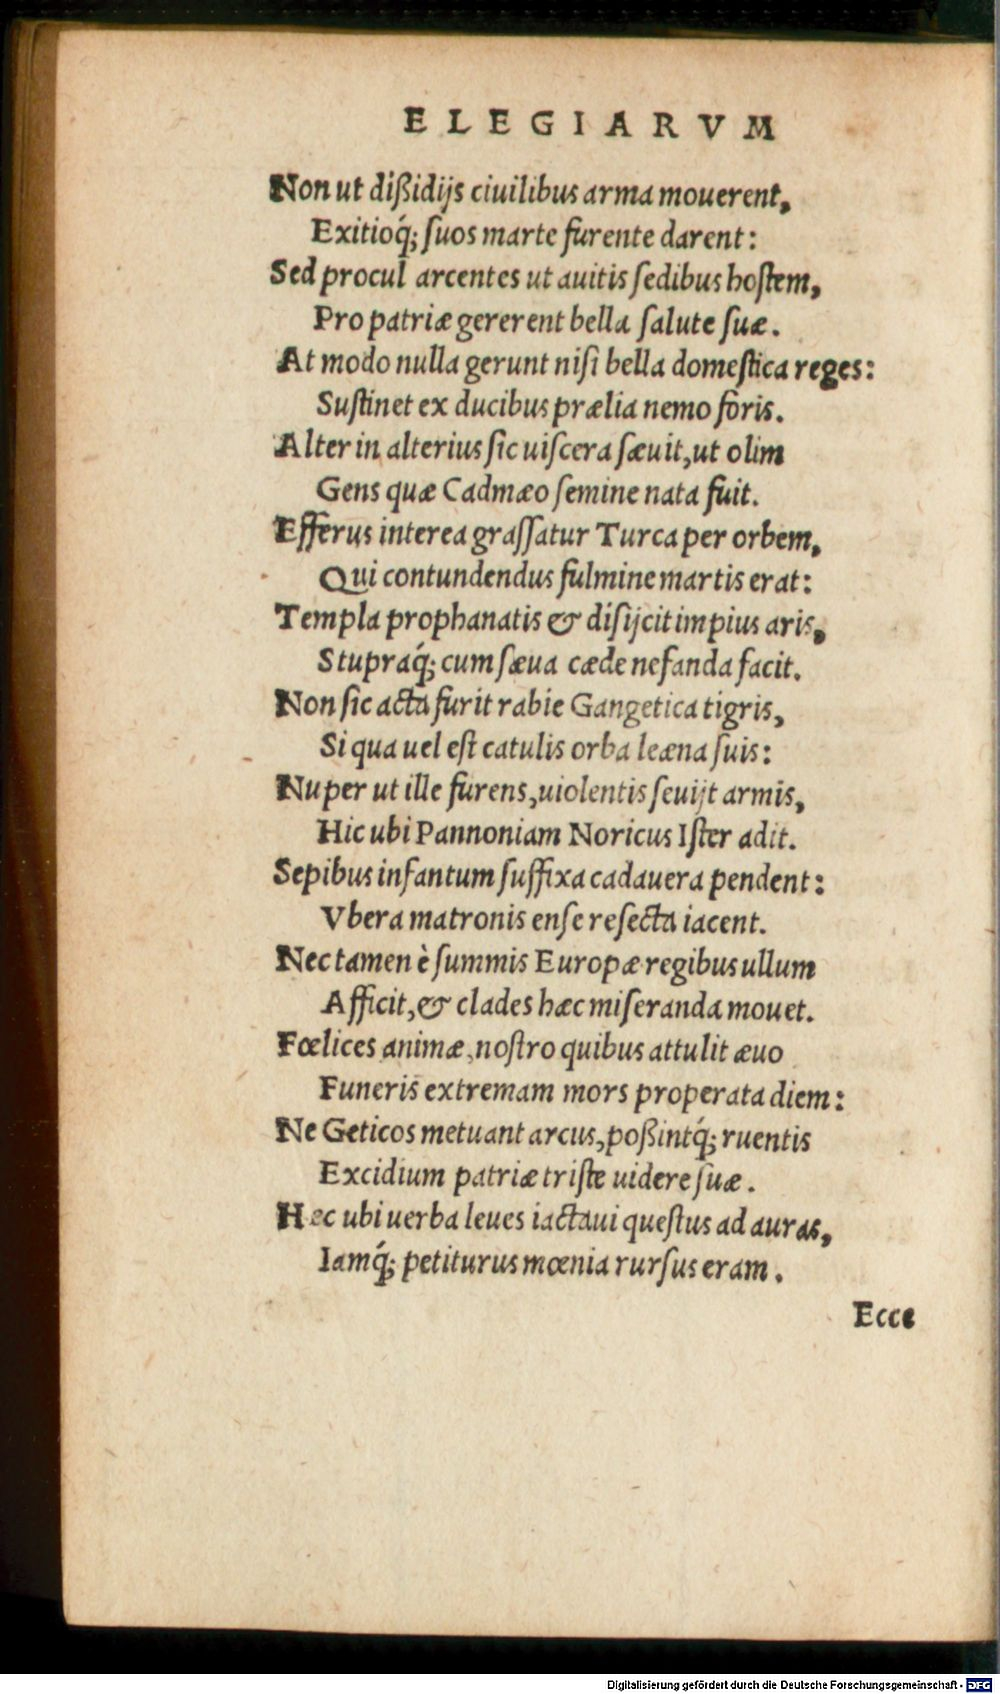 ELEGIARVM
Non ut dißidijs ciuilibus arma mouerent,
Exitioq́; ſuos marte furente darent:
Sed procul arcentes ut auitis ſedibus hoſtem,
Pro patriæ gererent bella ſalute ſuæ.
At modo nulla gerunt niſi bella domeſtica reges:
Suſtinet ex ducibus prælia nemo foris.
Alter in alterius ſic uiſcera ſæuit, ut olim
Gens quæ Cadmæo ſemine nata fuit.
Efferus interea graſſatur Turca per orbem,
Qui contundendus fulmine martis erat:
Templa prophanatis & diſijcit impius aris,
Stupraq́; cum ſæua cæde nefanda facit.
Non ſic acta furit rabie Gangetica tigris,
Si qua uel eſt catulis orba leæna ſuis:
Nuper ut ille furens, uiolentis ſeuijt armis,
Hic ubi Pannoniam Noricus Iſter adit.
Sepibus infantum ſuffixa cadauera pendent:
Vbera matronis enſe reſecta iacent.
Nec tamen è ſummis Europæ regibus ullum
Afficit, & clades hæc miſeranda mouet.
Fœlices animæ, noſtro quibus attulit æuo
Funeris extremam mors properata diem:
Ne Geticos metuant arcus, poßintq́; ruentis
Excidium patriæ triſte uidere ſuæ.
Hec ubi uerba leues iactaui queſtus ad auras,
Iamq́; petiturus mœnia rurſus eram.
Ecce
Digitalisierung gefördert durch die Deutsche Forschungsgemeinschaft - DFG